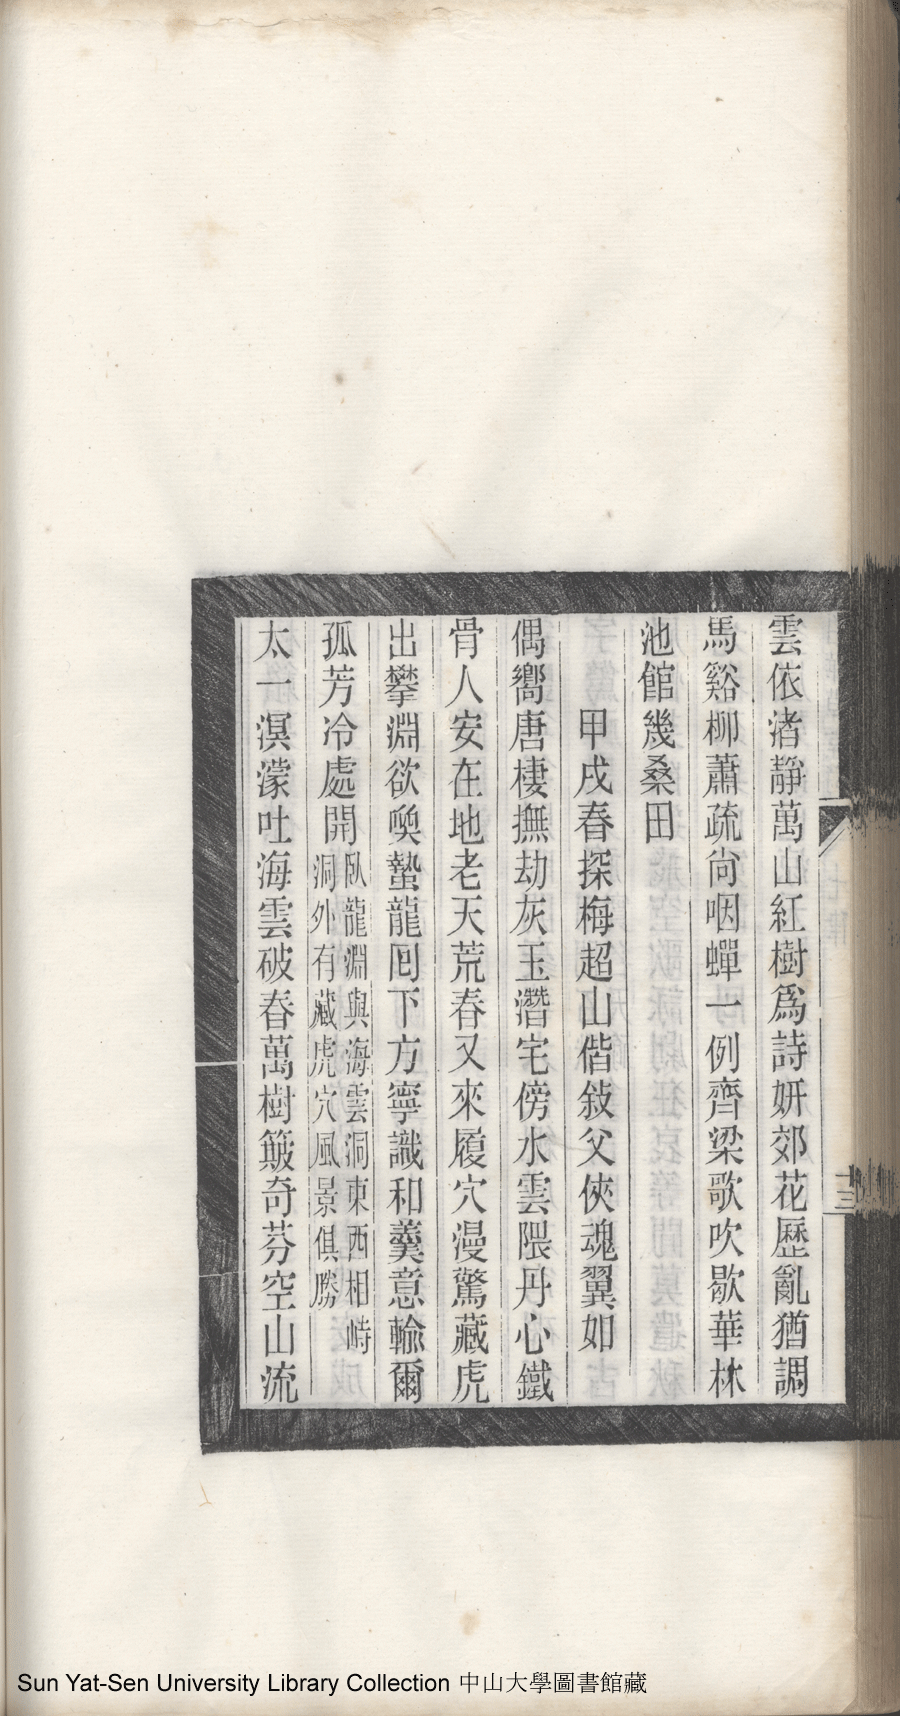 雲依渚靜萬山紅樹爲詩妍郊花歷亂猶調
馬谿柳蕭疏尙咽蟬一例齊梁歌吹歇華林
池館幾桑田
甲戌春探梅超山偕敍父俠魂翼如
偶嚮唐棲撫劫灰玉潛宅傍水雲隈丹心鐵
骨人安在地老天荒春又來履穴漫驚藏虎
出攀淵欲喚蟄龍囘下方寧識和羹意輸爾
孤芳冷處開臥龍淵與海雲洞東西相峙
洞外有藏虎穴風景俱勝
太一溟濛吐海雲破春萬樹簸奇芬空山流
十三
Sun Yat-Sen University Library Collection 中山大學圖書館藏